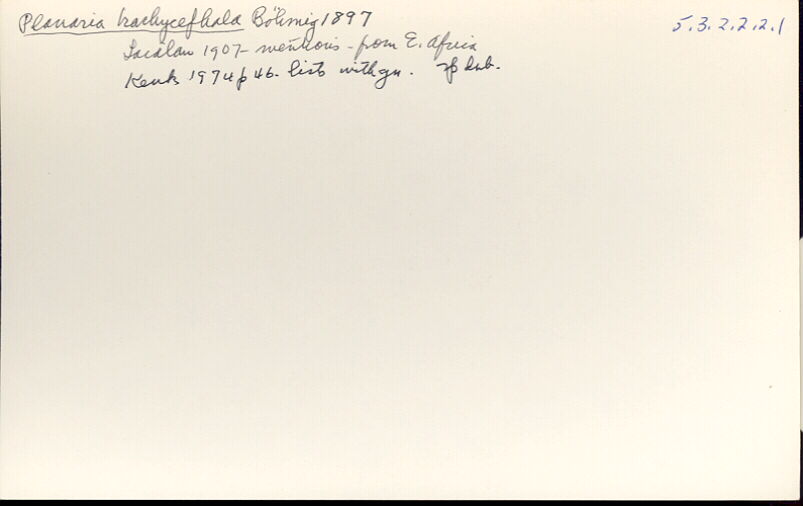 Planaria brachycephala Böhmig 1897
5.3.2.2.2.1
1907 - mentions - from E. Africa
Kenk 1974 p 46. lists with gn. sp dub.